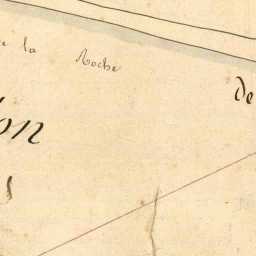 de la Roche
de
on